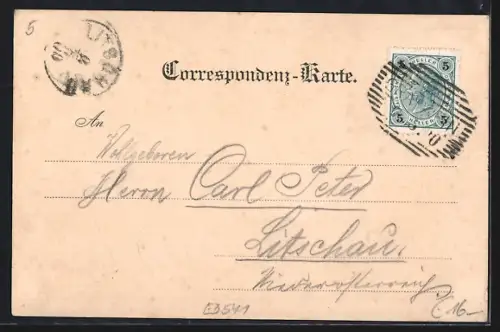 5
LITSCHAU
Correspondenz-Karte.
5 5
HELLER
5 5
An
Wohlgeboren
Herrn Carl Peter
Litschau.
Niederösterreich
E3541
€16-